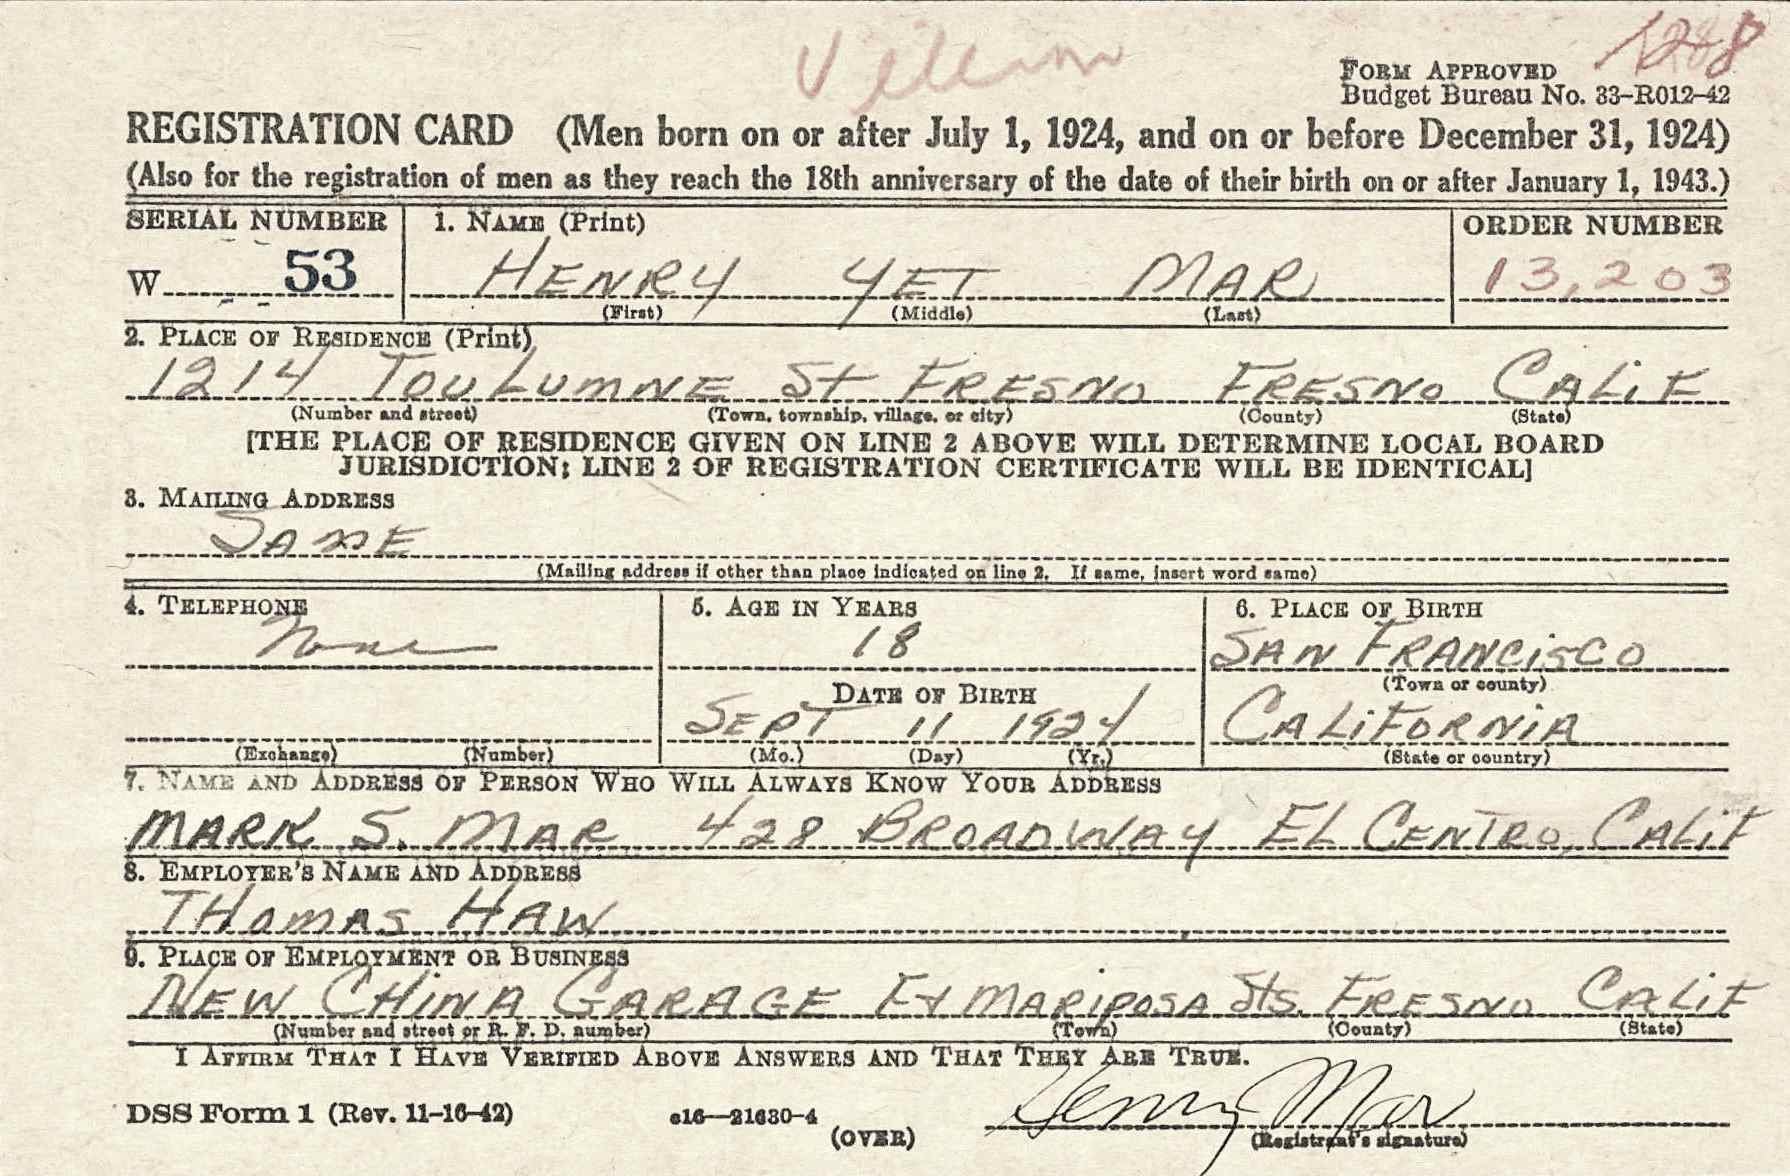 FORM APPROVED
Budget Bureau No. 33-R012-42
REGISTRATION CARD (Men born on or after July 1, 1924, and on or before December 31, 1924)
(Also for the registration of men as they reach the 18th anniversary of the date of their birth on or after January 1, 1943.)
SERIAL NUMBER 1. NAME (Print) ORDER NUMBER
W 53 HENRY YET MAR 13,203
(First) (Middle) (Last)
2. PLACE OF RESIDENCE (Print)
1214 TOULUMNE St FRESNO FRESNO CALIF
(Number and street) (Town, township, village, or city) (County) (State)
[THE PLACE OF RESIDENCE GIVEN ON LINE 2 ABOVE WILL DETERMINE LOCAL BOARD
JURISDICTION; LINE 2 OF REGISTRATION CERTIFICATE WILL BE IDENTICAL]
3. MAILING ADDRESS
SAME
(Mailing address if other than place indicated on line 2. If same, insert word same)
4. TELEPHONE 5. AGE IN YEARS 6. PLACE OF BIRTH
None 18 SAN FRANCISCO
(Town or county)
DATE OF BIRTH
SEPT 11 1924 CALIFORNIA
(Exchange) (Number) (Mo.) (Day) (Yr.) (State or country)
7. NAME AND ADDRESS OF PERSON WHO WILL ALWAYS KNOW YOUR ADDRESS
MARK S. MAR 428 BROADWAY EL CENTRO, CALIF
8. EMPLOYER'S NAME AND ADDRESS
THOMAS HAW
9. PLACE OF EMPLOYMENT OR BUSINESS
NEW CHINA GARAGE F & MARIPOSA Sts. FRESNO CALIF
(Number and street or R. F. D. number) (Town) (County) (State)
I AFFIRM THAT I HAVE VERIFIED ABOVE ANSWERS AND THAT THEY ARE TRUE.
DSS Form 1 (Rev. 11-16-42) e16—21630-4 Henry Mar
(OVER) (Registrant's signature)